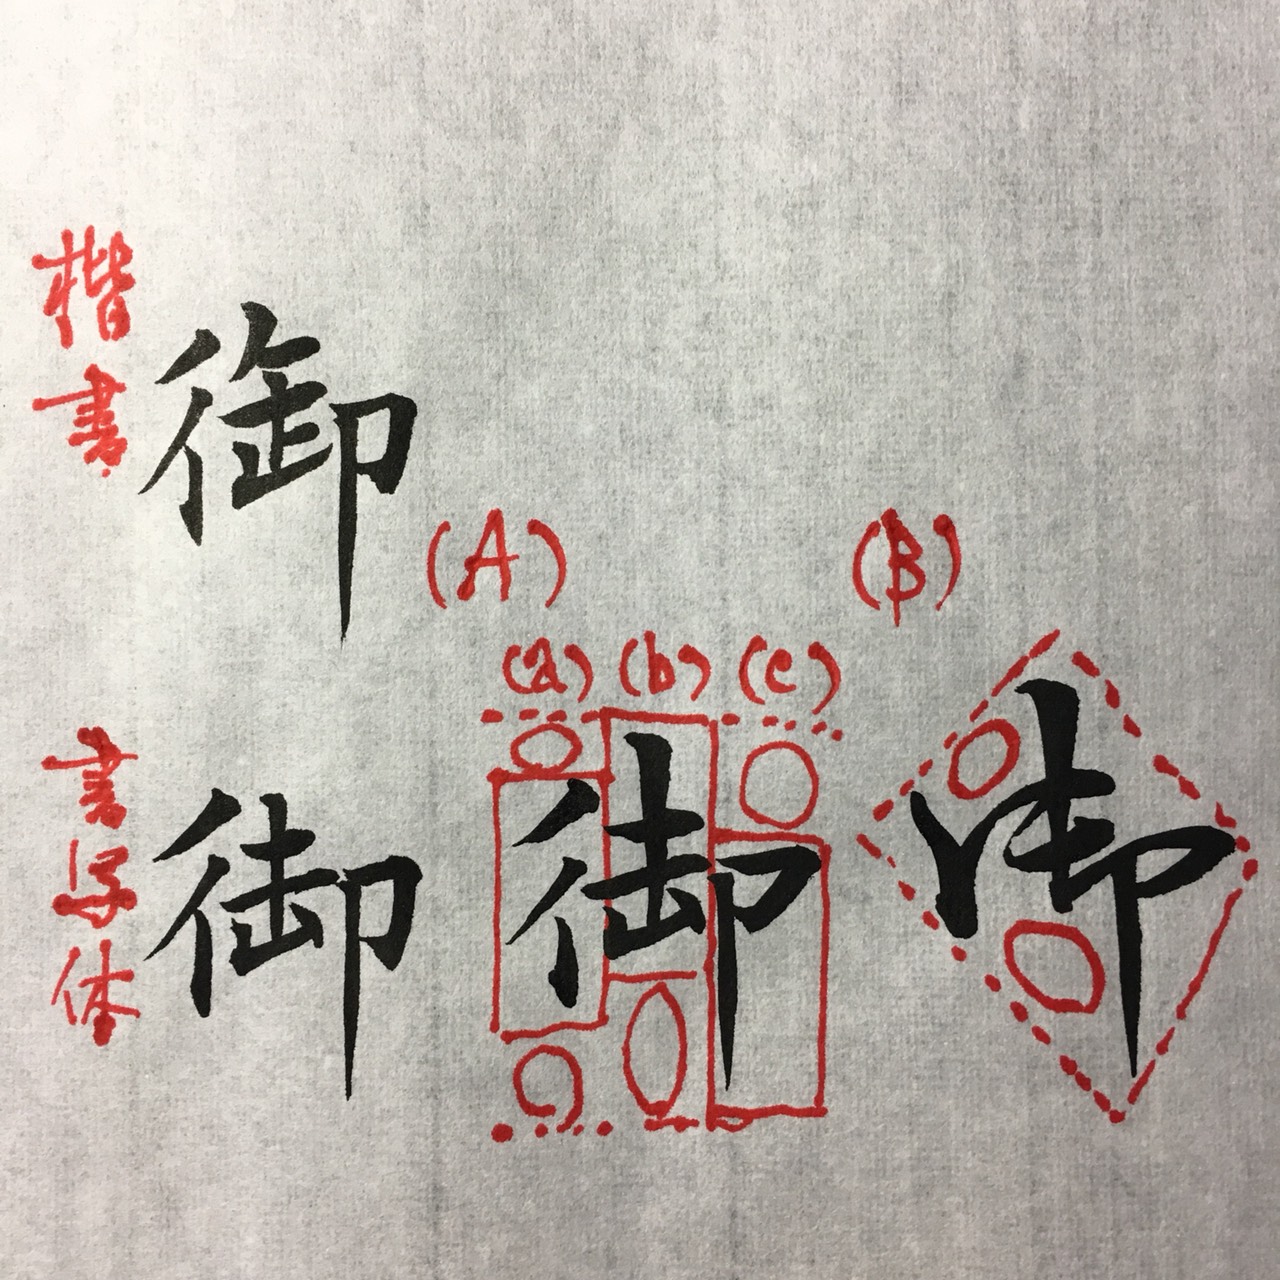 楷書
御
(A)
(B)
(a) (b) (c)
書写体
御
御
御